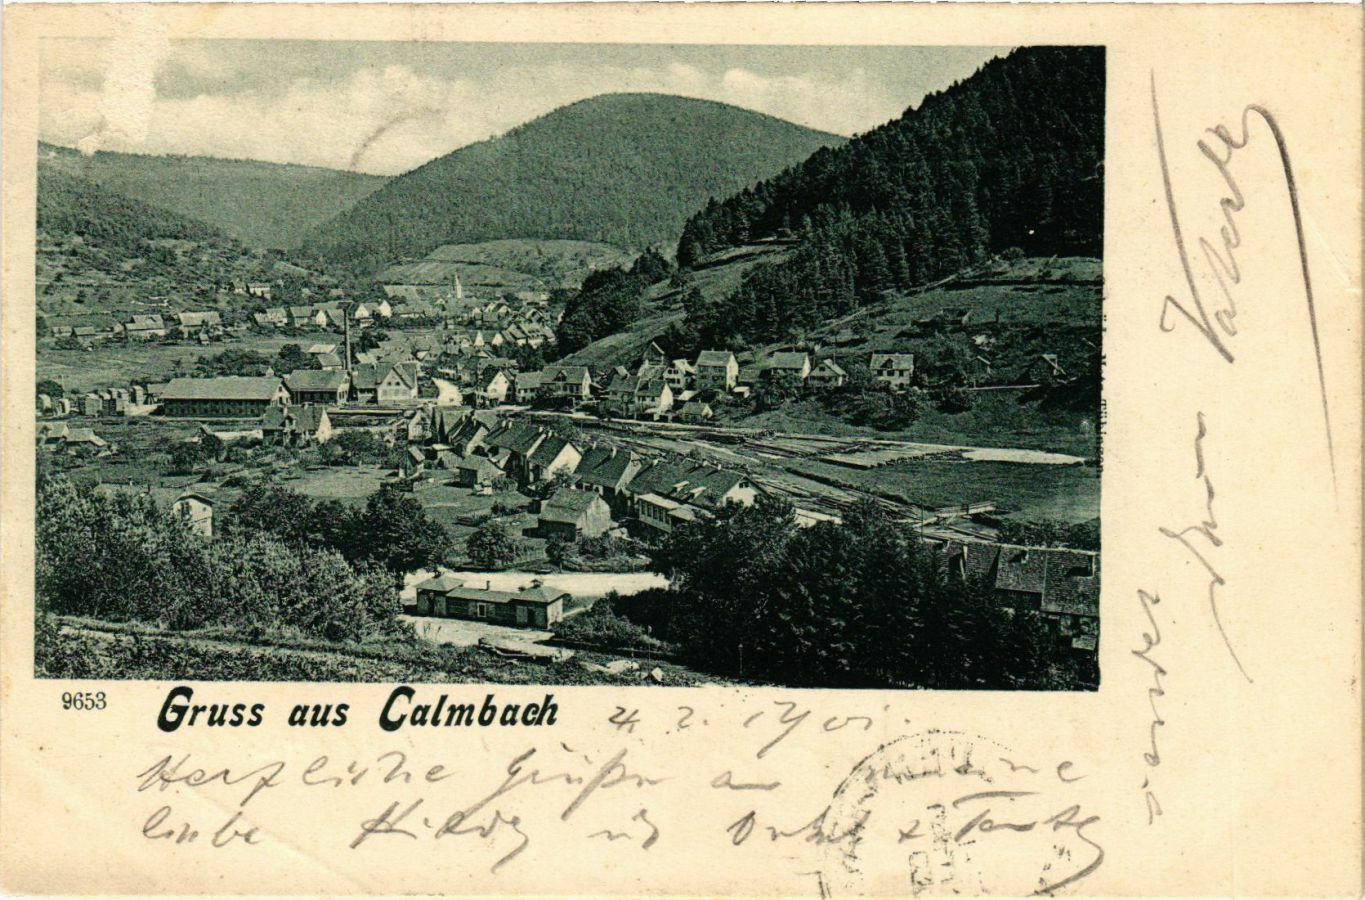 9653 Gruss aus Calmbach 4. 2. 1901.
Herzliche Grüße an meine
liebe u Onkel & Tante
sendet
Vater